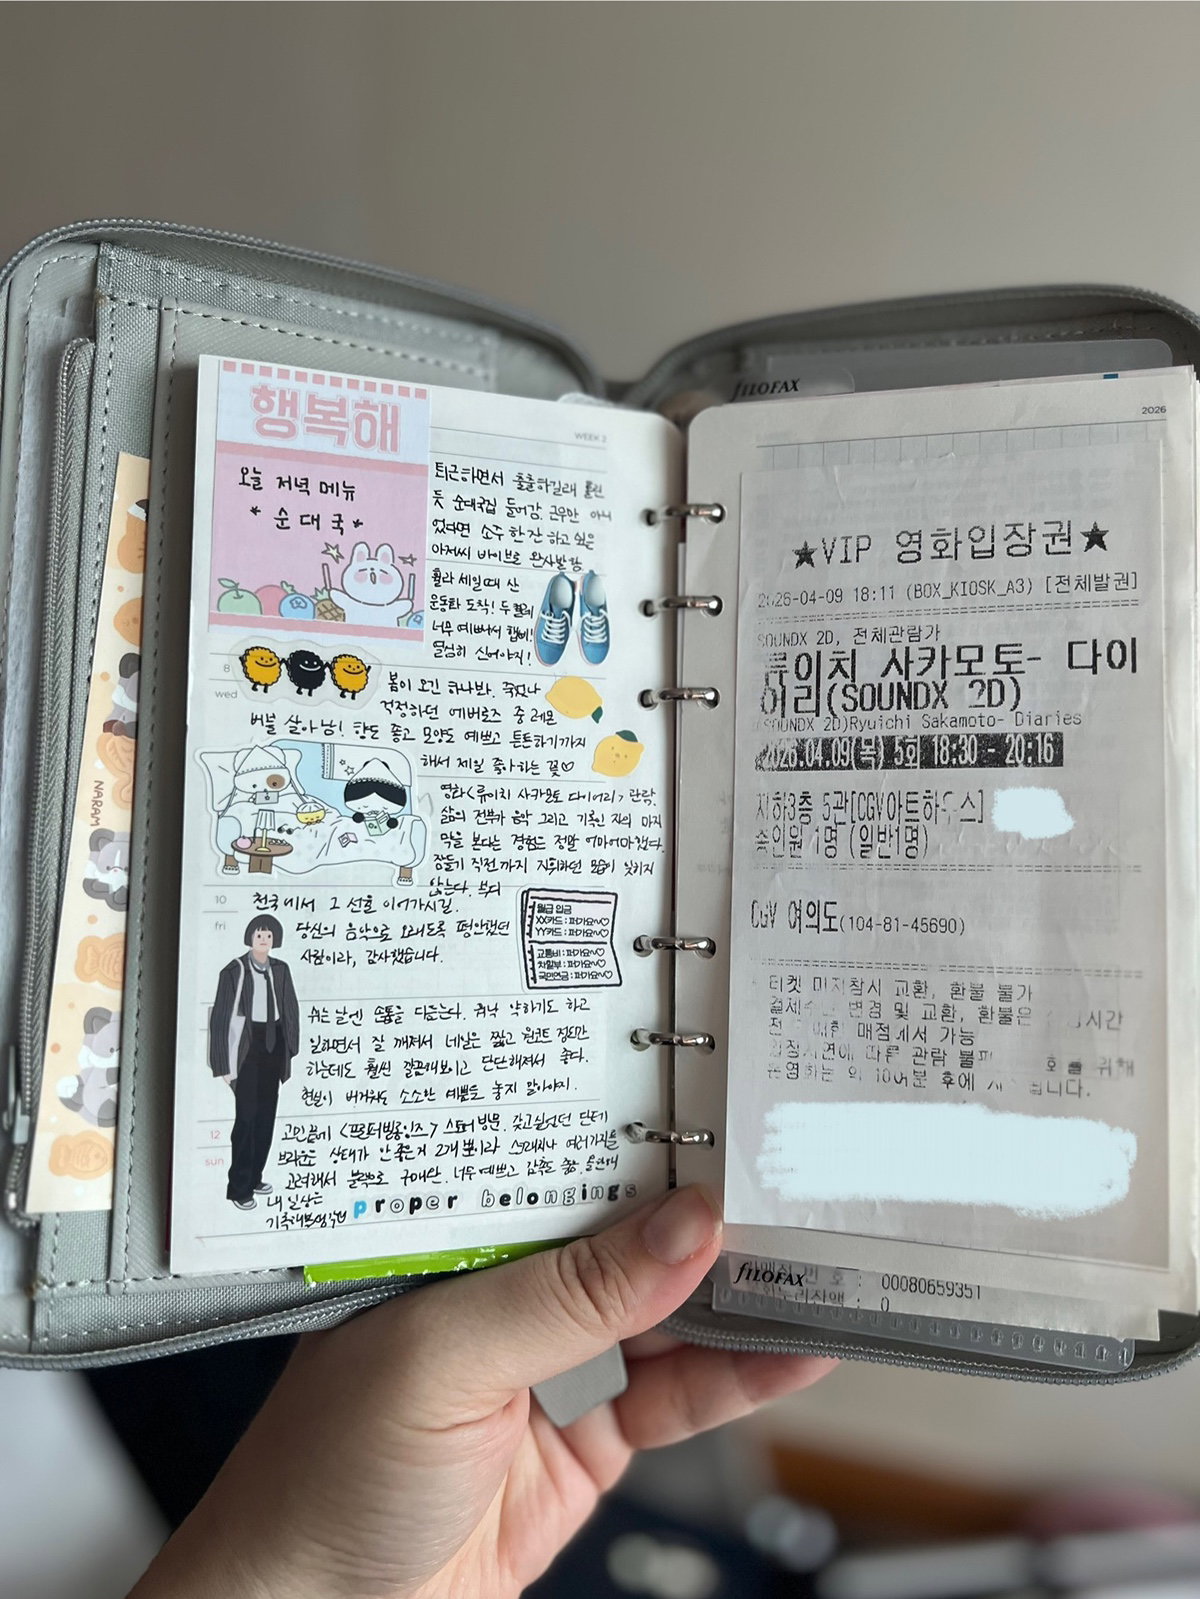 행복해
오늘 저녁 메뉴
* 순대국 *
WEEK 2
퇴근하면서 출출하길래 홀린
듯 순대국집 들어감. 근무만 아니
었다면 소주 한 잔 하고 싶은
아저씨 바이브로 완사발함
훨라 세일때 산
운동화 도착! 두 켤레
너무 예뻐서 햅삐!
열심히 신어야지!
8
wed
봄이 오긴 하나봐. 죽었나
걱정하던 에버로즈 중 레몬
버블 살아남! 향도 좋고 모양도 예쁘고 튼튼하기까지
해서 제일 좋아하는 꽃♡
영화<류이치 사카모토 다이어리> 관람.
삶의 전부가 음악 그리고 기록인 자의 마지
막을 본다는 경험은 정말 어마어마했다.
잠들기 직전까지 지휘하던 모습이 잊히지
않는다. 부디
10
fri
천국에서 그 선율 이어가시길.
당신의 음악으로 오래도록 평안했던
사람이라, 감사했습니다.
월급 입금
XX카드 : 퍼가요~♡
YY카드 : 퍼가요~♡
교통비 : 퍼가요~♡
차할부 : 퍼가요~♡
국민연금 : 퍼가요~♡
쉬는 날엔 손톱을 다듬는다. 워낙 약하기도 하고
일하면서 잘 깨져서 네일은 짧고 원코트 정도만
하는데도 훨씬 깔끔해보이고 단단해져서 좋다.
현실이 버거워도 소소한 예쁨을 놓지 말아야지.
12
sun
고민끝에 <프로퍼빌롱잉즈> 스토어 방문. 갖고싶었던 단테
브라운은 상태가 안좋은거 2개 뿐이라
고려해서 블랙으로 구매완. 너무 예쁘고 감촉도 좋음.
내 일상은
proper belongings
NARAM
fILOFAX
2026
★VIP 영화입장권★
2026-04-09 18:11 (BOX_KIOSK_A3) [전체발권]
SOUNDX 2D, 전체관람가
류이치 사카모토- 다이
어리(SOUNDX 2D)
(SOUNDX 2D)Ryuichi Sakamoto- Diaries
2026.04.09(목) 5회 18:30 - 20:16
지하3층 5관[CGV아트하우스]
총인원 1명 (일반1명)
CGV 여의도(104-81-45690)
티켓 미지참시 교환, 환불 불가
결제수단 변경 및 교환, 환불은 시간
전 매점에서 가능
입장지연에 따른 관람 불편 위해
본영화는 약 10여분 후에 됩니다.
fILOFAX
번 호 : 00080659351
: 0